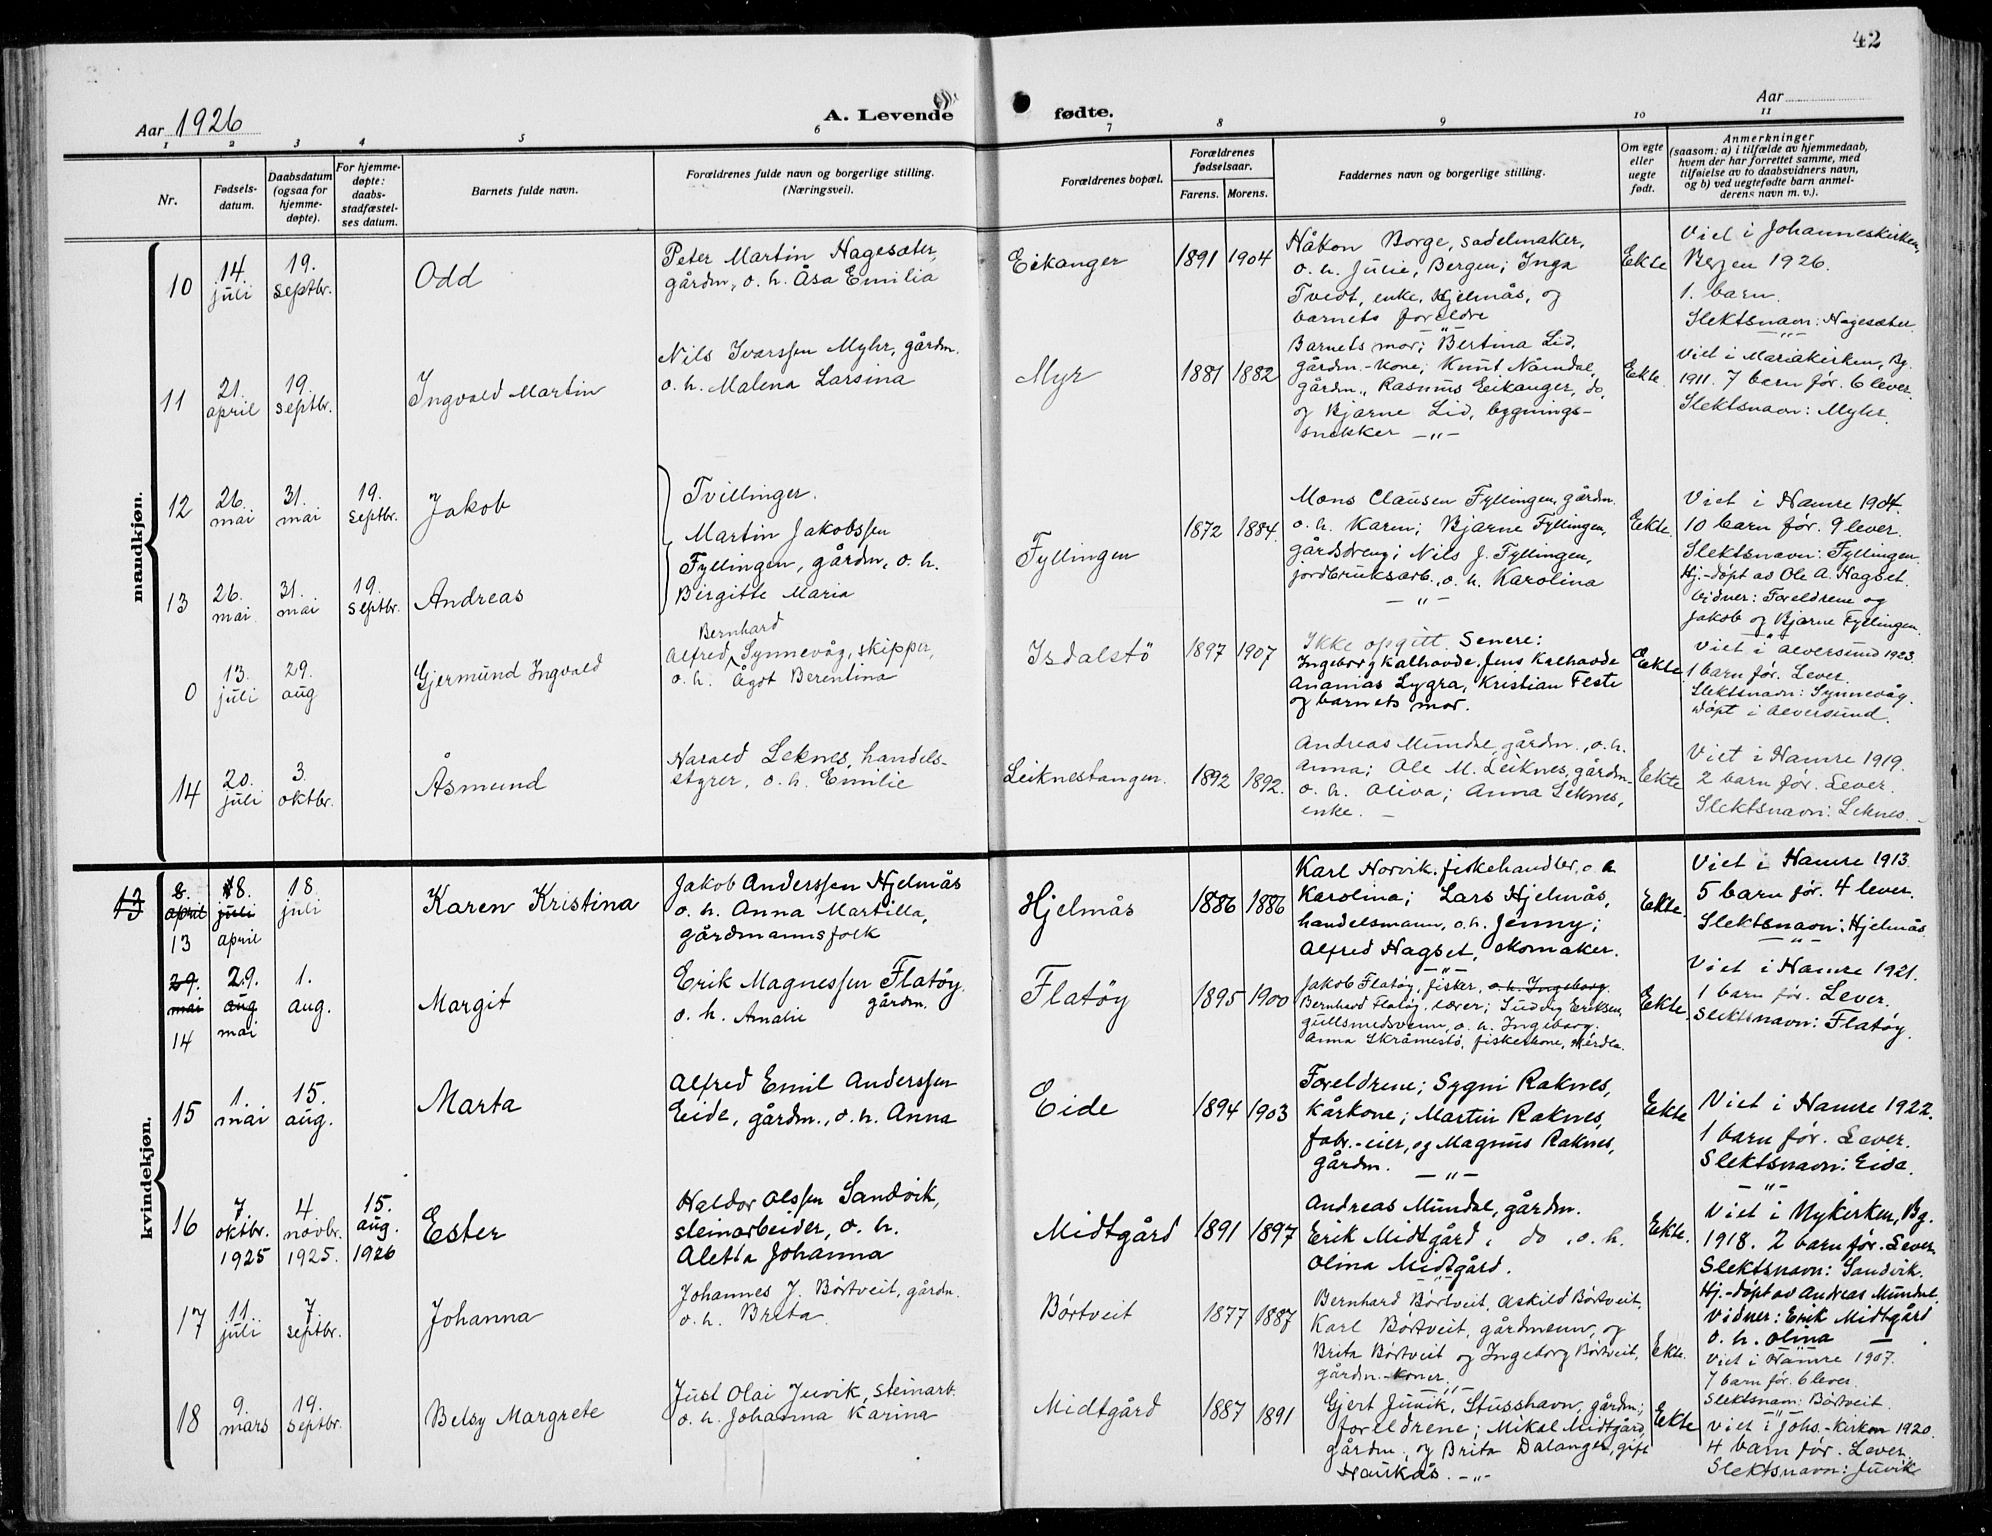 42
Aar 1926
A. Levende fødte.
Aar
1 2 3 4 5 6 7 8 9 10 11
Nr.
Fødsels-
datum.
Daabsdatum
(ogsaa for
hjemme-
døpte).
For hjemme-
døpte:
daabs-
stadfæstel-
ses datum.
Barnets fulde navn.
Forældrenes fulde navn og borgerlige stilling.
(Næringsvei).
Forældrenes bopæl.
Forældrenes
fødselsaar.
Farens. Morens.
Faddernes navn og borgerlige stilling.
Om egte
eller
uegte
født.
Anmerkninger
(saasom: a) i tilfælde av hjemmedaab,
hvem der har forrettet samme, med
tilføielse av to daabsvidners navn,
og b) ved uegtefødte barn anmel-
derens navn m. v.).
mandkjøn.
10
14.
juli
19.
septbr.
Odd
Peter Martin Hagesæter,
gårdm., o. h. Åsa Emilia
Eikanger
1891 1904
Håkon Borge, sadelmaker,
o. h. Julie, Bergen; Inga
Tvedt, enke, Hjelmås, og
barnets foreldre
Ekte
Viet i Johanneskirken,
Bergen 1926.
1. barn.
Slektsnavn: Hagesæter
11
21.
april
19.
septbr.
Ingvald Martin
Nils Ivarssen Myhr, gårdm.
o. h. Malena Larsina
Myr
1881 1882
Barnets mor; Bertina Lid,
gårdm.-kone; Knut Nåmdal,
gårdm., Rasmus Eikanger, do,
og Bjarne Lid, bygnings-
snekker -"-
Ekte.
Viet i Mariakirken, Bg.
1911. 7 barn før. 6 lever.
Slektsnavn: Myhr.
12
26.
mai
31.
mai
19.
septbr.
Jakob
Tvillinger.
Martin Jakobssen
Fyllingen, gårdm., o. h.
Birgitte Maria
Fyllingen
1872 1884.
Mons Clausen Fyllingen, gårdm.
o. h. Karen; Bjarne Fyllingen,
gårdsdreng; Nils J. Fyllingen,
jordbruksarb., o. h. Karolina
-"-
Ekte.
Viet i Hamre 1904.
10 barn før. 9 lever.
Slektsnavn: Fyllingen.
Hj.-døpt av Ole A. Hagset.
Vidner: Foreldrene og
Jakob og Bjarne Fyllingen.
13
26.
mai
31.
mai
19.
septbr.
Andreas
0
13.
juli
29.
aug
Gjermund Ingvald
Bernhard
Alfred Synnevåg, skipper,
o. h. Ågot Berentina
Isdalstø
1897 1907
Ikke opgitt. Senere:
Ingeborg Kalhovde, Jens Kalhovde
Ananias Lygra, Kristian Feste
og barnets mor.
Ekte
Viet i Alversund 1923.
1 barn før. Lever.
Slektsnavn: Synnevåg.
Døpt i Alversund.
14
20.
juli
3.
oktbr.
Åsmund
Harald Leknes, handels-
styrer, o. h. Emilie
Leiknestangen.
1892 1892.
Andreas Mundal, gårdm., o. h.
Anna; Ole M. Leiknes, gårdm.
o. h. Oliva; Anna Leknes,
enke. -
Ekte
Viet i Hamre 1919.
2 barn før. Lever.
Slektsnavn: Leknes.
kvindekjøn.
13
8.
april
13
18.
juli
april
18.
juli
Karen Kristina
Jakob Anderssen Hjelmås
o. h. Anna Martilla,
gårdmannsfolk
Hjelmås
1886 1886
Karl Horvik, fiskehandler, o. h
Karolina; Lars Hjelmås,
handelsmann, o. h. Jenny;
Alfred Hagset, skomaker.
Ekte.
Viet i Hamre 1913.
5 barn før. 4 lever.
Slektsnavn: Hjelmås.
29.
mai
14
29.
aug
mai
1.
aug.
Margit
Erik Magnessen Flatøy,
gårdm.
o. h. Amalie
Flatøy
1895 1900
Jakob Flatøy, fisker, o. h. Ingeborg.
Bernhard Flatøy, lærer; Ludvig Eriksen,
gullsmedsvenn, o. h. Ingeborg.
Anna Skråmestø, fiskerkone, Herdla.
Ekte.
Viet i Hamre 1921.
1 barn før. Lever.
Slektsnavn: Flatøy.
15
1.
mai
15.
aug.
Marta
Alfred Emil Anderssen
Eide, gårdm., o. h. Anna
Eide
1894 1903
Foreldrene; Sygni Raknes,
kårkone; Martin Raknes,
fabr.-eier, og Magnus Raknes,
gårdm. -"-
Ekte
Viet i Hamre 1922.
1 barn før. Lever.
Slektsnavn: Eide.
-"-
16
7.
oktbr.
1925
4.
novbr.
1925.
15.
aug.
1926
Ester
Haldor Olssen Sandvik,
steinarbeider, o. h.
Aletta Johanna
Midtgård
1891 1897
Andreas Mundal, gårdm.
Erik Midtgård, do, o. h.
Olina Midtgård.
Ekte.
Viet i Nykirken, Bg.
1918. 2 barn før. Lever.
Slektsnavn: Sandvik.
Hj.-døpt av Andreas Mundal.
Vidner: Erik Midtgård
o. h. Olina -
17
11.
juli
7.
septbr.
Johanna
Johannes J. Børtveit, gårdm.
o. h. Brita.
Børtveit
1877 1887
Bernhard Børtveit, Askild Børtveit,
Karl Børtveit, gårdmenn, og
Brita Børtveit og Ingeborg Børtveit,
gårdm.-koner.
Ekte.
Viet i Hamre 1907.
7 barn før. 6 lever.
Slektsnavn: Børtveit.
18
9.
mars
19.
septbr.
Belsy Margrete
Just Olai Juvik, steinarb.
o. h. Johanna Karina
Midtgård
1887 1891
Gjert Juvik, Stusshavn, gårdm;
foreldrene; Mikal Midtgård,
gårdm., og Brita Dalanger, gift
Haukås. -"-
Ekte
Viet i Johs.-kirken 1920.
4 barn før. Lever.
Slektsnavn: Juvik